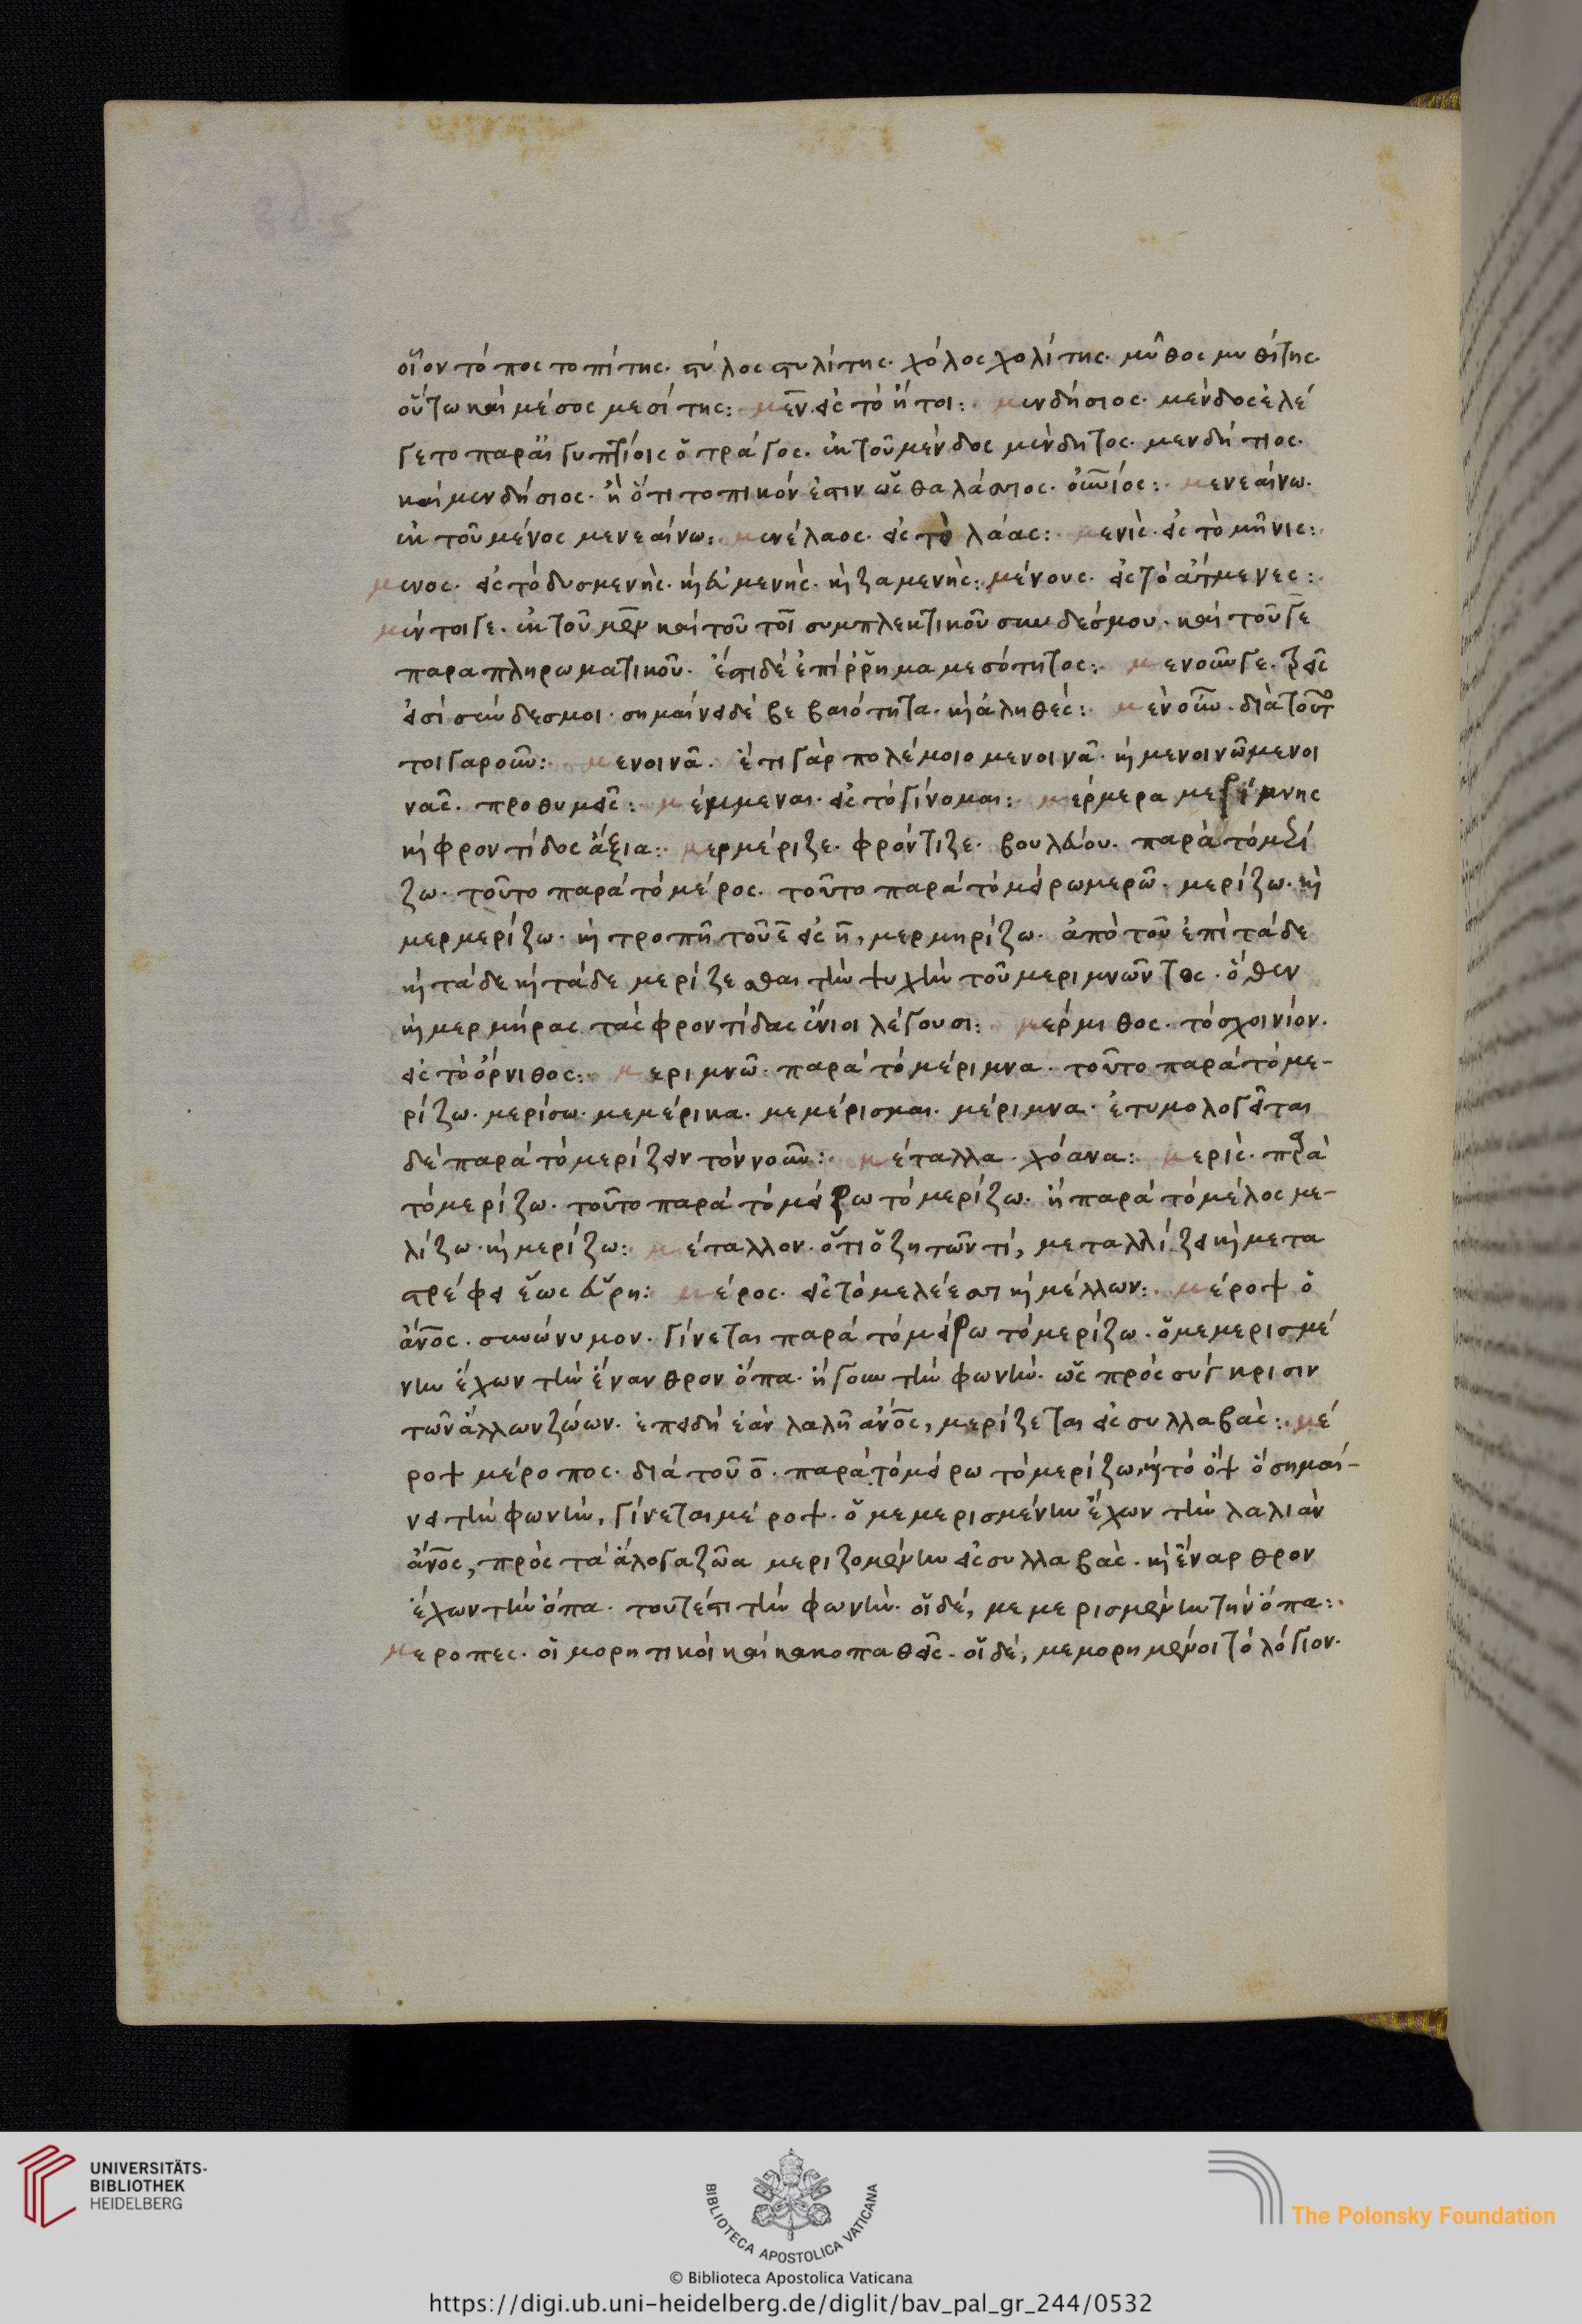 οἷον τόπος τοπίτης· στύλος στυλίτης· χόλος χολίτης· μῦθος μυθίτης·
οὕτω καὶ μέσος μεσίτης:· μὲν· εἰς τὸ ἤτοι:· μενδήσιος· μένδος ἐλέ
γετο παρ' αἰγυπτίοις ὁ τράγος· ἐκ τοῦ μένδος μένδητος· μενδήτιος·
καὶ μενδήσιος· ἢ ὅτι τοπικόν ἐστιν ὡς θαλάσσιος·
ἐκ τοῦ μένος μενεαίνω:· μενέλαος· εἰς τὸ λάας:· μενις· εἰς τὸ μῆνις:·
μενος· εἰς τὸ δυσμενὴς· κὶ εὐμενὴς· κὶ ζαμενὴς:· μένους· εἰς τὸ ἀτμενες:·
μέντοιγε· ἐκ τοῦ μὲν καὶ τοῦ τοὶ συμπλεκτικοῦ συνδέσμου· καὶ τοῦ γε
παραπληρωματικοῦ· ἔστι δὲ ἐπίῤῥημα μεσότητος:· μενοῦνγε· τρεῖς
εἰσὶ σύνδεσμοι· σημαίνει δὲ βεβαιότητα· κὶ ἀληθές:· μὲν οὖν· διὰ τοῦτο
τοιγαροῦν:· μενοινᾶ· ἔτι γὰρ πολέμοιο μενοινᾶ· κὶ μενοινῶ μενοι
νᾶς· προθυμεῖς:· μέμμεναι· εἰς τὸ γίνομαι:· μέρμερα μερίμνης
κὶ φροντίδος ἄξια:· μερμέριζε· φρόντιζε· βουλεύου· παρὰ τὸ μερί
ζω· τοῦτο παρὰ τὸ μέρος· τοῦτο παρὰ τὸ μείρω μερῶ· μερίζω· κὶ
μερμερίζω· κὶ τροπῆ τοῦ ε εἰς η, μερμηρίζω· ἀπὸ τοῦ ἐπὶ τάδε
κὶ τάδε κὶ τάδε μερίζεσθαι τὴν ψυχὴν τοῦ μεριμνῶντος· ὅθεν
κὶ μερμήρας τὰς φροντίδας ἔνιοι λέγουσι:· μέρμιθος· τὸ σχοινίον·
εἰς τὸ ὄρνιθος:· μεριμνῶ· παρὰ τὸ μέριμνα· τοῦτο παρὰ τὸ με-
ρίζω· μερίσω· μεμέρικα· μεμέρισμαι· μέριμνα· ἐτυμολογεῖται
δὲ παρὰ τὸ μερίζειν τὸν νοῦν:· μέταλλα· χόανα:· μερὶς· παρὰ
τὸ μερίζω· τοῦτο παρὰ τὸ μείρω τὸ μερίζω· ἢ παρὰ τὸ μέλος με-
λίζω· κὶ μερίζω:· μέταλλον· ὅτι ὁ ζητῶν τί, μεταλλίζει κὶ μετα
στρέφει ἕως εὕρη:· μέρος· εἰς τὸ μελέεσσι κὶ μέλλων:· μέροψ ὁ
ἄνος· συνώνυμον· γίνεται παρὰ τὸ μείρω τὸ μερίζω· ὁ μεμερισμέ
νην ἔχων τὴν ἔναρθρον ὄπα· ἤγουν τὴν φωνήν· ὡς πρὸς σύγκρισιν
τῶν ἄλλων ζώων· ἐπειδὴ ἐὰν λαλῆ ἄνος, μερίζεται εἰς συλλαβὰς:· μέ
ροψ μέροπος· διὰ τοῦ ο· παρὰ τὸ μείρω τὸ μερίζω, κὶ τὸ ὂψ ὃ σημαί-
νει τὴν φωνήν, γίνεται μέροψ· ὁ μεμερισμένην ἔχων τὴν λαλιὰν
ἄνος, πρὸς τὰ ἄλογα ζῶα μεριζομένην εἰς συλλαβὰς· κὶ ἔναρθρον
ἔχων τὴν ὄπα· τουτέστι τὴν φωνήν· οἱ δὲ, μεμερισμένην τὴν ὄπα:·
μεροπες· οἱ μορητικοὶ καὶ κακοπαθεῖς· οἱ δὲ, μεμορημένοι τὸ λόγιον·
UNIVERSITÄTS-
BIBLIOTHEK
HEIDELBERG
BIBLIOTECA APOSTOLICA VATICANA
The Polonsky Foundation
© Biblioteca Apostolica Vaticana
https://digi.ub.uni-heidelberg.de/diglit/bav_pal_gr_244/0532